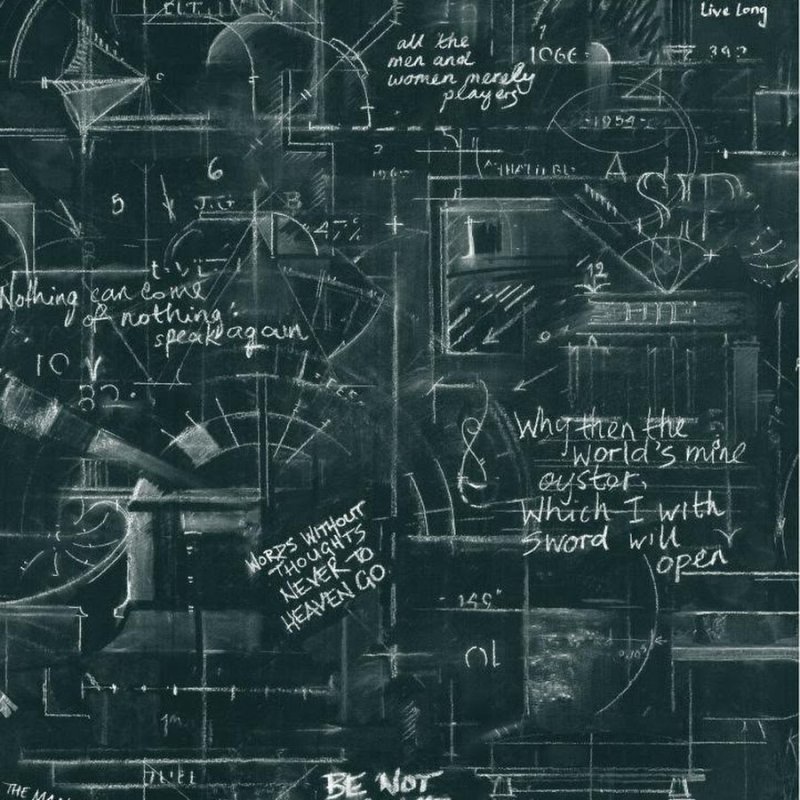 Live Long
all the
men and
women merely
players
1066
392
1954
A
6
5
J.G
B
47%
12
Nothing can come
of nothing:
speak again
10
Why then the
world's mine
oyster,
which I with
sword will
open
WORDS WITHOUT
THOUGHTS
NEVER TO
HEAVEN GO
10
BE NOT
THE MAN